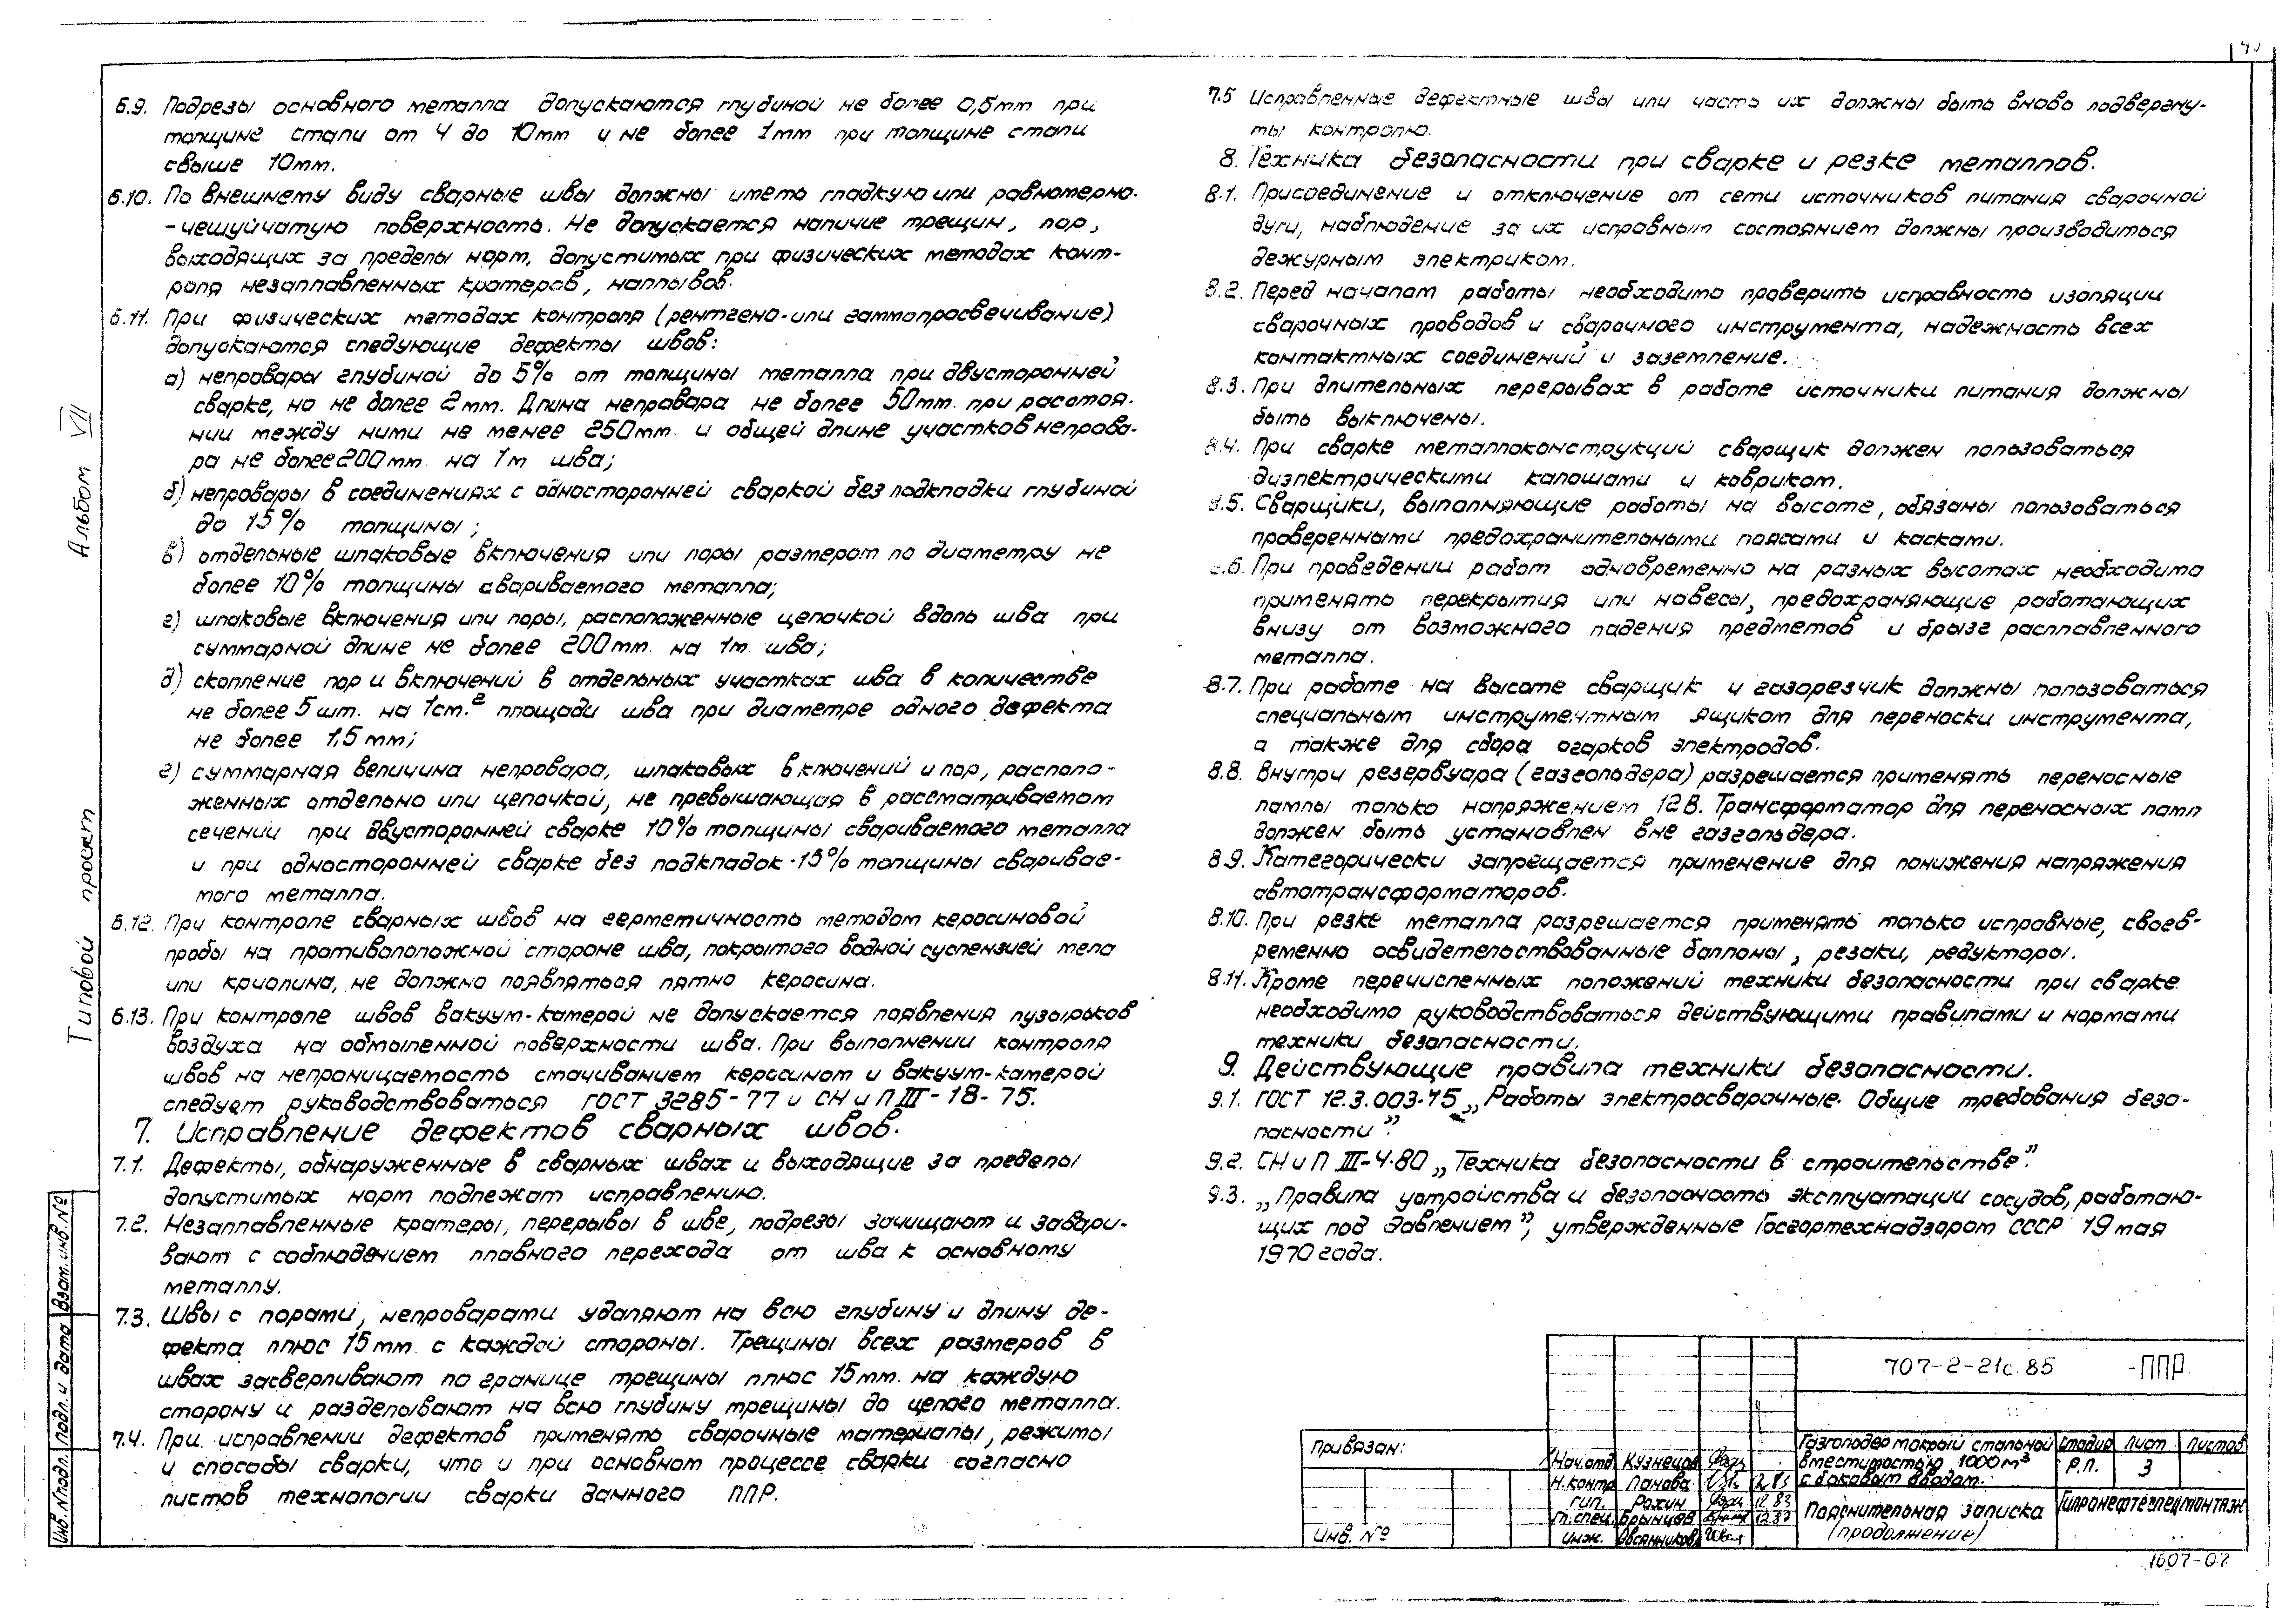 6.9. Подрезы основного металла допускаются глубиной не более 0,5мм при
толщине стали от 4 до 10мм и не более 1мм при толщине стали
свыше 10мм.
6.10. По внешнему виду сварные швы должны иметь гладкую или равномерно-
-чешуйчатую поверхность. Не допускается наличие трещин, пор,
выходящих за пределы норм, допустимых при физических методах конт-
роля незаплавленных кратеров, наплывов.
6.11. При физических методах контроля (рентгено- или гаммапросвечивание)
допускаются следующие дефекты швов:
а) непровары глубиной до 5% от толщины металла при двусторонней
сварке, но не более 2мм. Длина непровара не более 50мм. при расстоя-
нии между ними не менее 250мм. и общей длине участков непрова-
ра не более 200мм. на 1м шва;
б) непровары в соединениях с односторонней сваркой без подкладки глубиной
до 15% толщины;
в) отдельные шлаковые включения или поры размером по диаметру не
более 10% толщины свариваемого металла;
г) шлаковые включения или поры, расположенные цепочкой вдоль шва при
суммарной длине не более 200мм. на 1м. шва;
д) скопление пор и включений в отдельных участках шва в количестве
не более 5 шт. на 1см.² площади шва при диаметре одного дефекта
не более 1,5 мм;
г) суммарная величина непровара, шлаковых включений и пор, располо-
женных отдельно или цепочкой, не превышающая в рассматриваемом
сечении при двусторонней сварке 10% толщины свариваемого металла
и при односторонней сварке без подкладок - 15% толщины сваривае-
мого металла.
6.12. При контроле сварных швов на герметичность методом керосиновой
пробы на противоположной стороне шва, покрытого водной суспензией мела
или криолина, не должно появляться пятно керосина.
6.13. При контроле швов вакуум-камерой не допускается появления пузырьков
воздуха на обмыленной поверхности шва. При выполнении контроля
швов на непроницаемость смачиванием керосином и вакуум-камерой
следует руководствоваться ГОСТ 3285-77 и СН и П III-18-75.
7. Исправление дефектов сварных швов.
7.1. Дефекты, обнаруженные в сварных швах и выходящие за пределы
допустимых норм подлежат исправлению.
7.2. Незаплавленные кратеры, перерывы в шве, подрезы зачищают и завари-
вают с соблюдением плавного перехода от шва к основному
металлу.
7.3. Швы с порами, непроварами удаляют на всю глубину и длину де-
фекта плюс 15мм с каждой стороны. Трещины всех размеров в
швах засверливают по границе трещины плюс 15мм. на каждую
сторону и разделывают на всю глубину трещины до целого металла.
7.4. При исправлении дефектов применять сварочные материалы, режимы
и способы сварки, что и при основном процессе сварки согласно
листов технологии сварки данного ППР.
7.5 Исправленные дефектные швы или часть их должны быть вновь подвергну-
ты контролю.
8. Техника безопасности при сварке и резке металлов.
8.1. Присоединение и отключение от сети источников питания сварочной
дуги, наблюдение за их исправным состоянием должны производиться
дежурным электриком.
8.2. Перед началом работы необходимо проверить исправность изоляции
сварочных проводов и сварочного инструмента, надежность всех
контактных соединений и заземление.
8.3. При длительных перерывах в работе источники питания должны
быть выключены.
8.4. При сварке металлоконструкций сварщик должен пользоваться
диэлектрическими калошами и ковриком.
8.5. Сварщики, выполняющие работы на высоте, обязаны пользоваться
проверенными предохранительными поясами и касками.
8.6. При проведении работ одновременно на разных высотах необходимо
применять перекрытия или навесы, предохраняющие работающих
внизу от возможного падения предметов и брызг расплавленного
металла.
8.7. При работе на высоте сварщик и газорезчик должны пользоваться
специальным инструментным ящиком для переноски инструмента,
а также для сбора огарков электродов.
8.8. Внутри резервуара (газгольдера) разрешается применять переносные
лампы только напряжением 12В. Трансформатор для переносных ламп
должен быть установлен вне газгольдера.
8.9. Категорически запрещается применение для понижения напряжения
автотрансформаторов.
8.10. При резке металла разрешается применять только исправные, своев-
ременно освидетельствованные баллоны, резаки, редукторы.
8.11. Кроме перечисленных положений техники безопасности при сварке
необходимо руководствоваться действующими правилами и нормами
техники безопасности.
9. Действующие правила техники безопасности.
9.1. ГОСТ 12.3.003-75 „Работы электросварочные. Общие требования безо-
пасности”.
9.2. СН и П III-4-80 „Техника безопасности в строительстве”.
9.3. „Правила устройства и безопасность эксплуатации сосудов, работаю-
щих под давлением”, утвержденные Госгортехнадзором СССР 19 мая
1970 года.
Типовой проект Альбом VII
Инв.№подл. Подп. и дата Взам.инв.№
Привязан:
Инв. №
Нач.отд. Кузнецов
Н.контр Панова 12.83
ГИП. Рохин 12.83
Гл.спец. Брынцев 12.83
Инж. Овсянников
707-2-21с.85 -ППР
Газгольдер мокрый стальной
вместимостью 1000м³
с боковым вводом.
Стадия Лист Листов
Р.П. 3
Пояснительная записка
(продолжение)
Гипронефтеспецмонтаж
1607-07